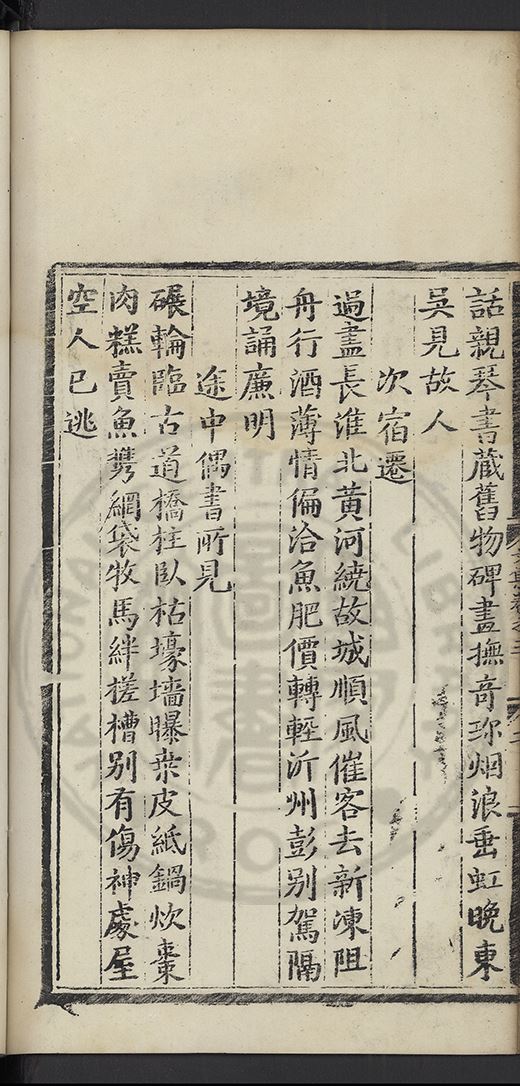 話親琴書蔵舊物碑畫撫奇珎烟浪垂虹晚東
吳見故人
次宿遷
過盡長淮北黃河繞故城順風催客去新凍阻
舟行酒薄情偏洽魚肥價轉輕沂州彭别駕隔
境誦廉明
途中偶書所見
碾輪臨古道橋柱臥枯壕墻曝桒皮紙鍋炊棗
肉糕賣魚㩗網袋牧馬絆槎槽别有傷神處屋
空人已逃